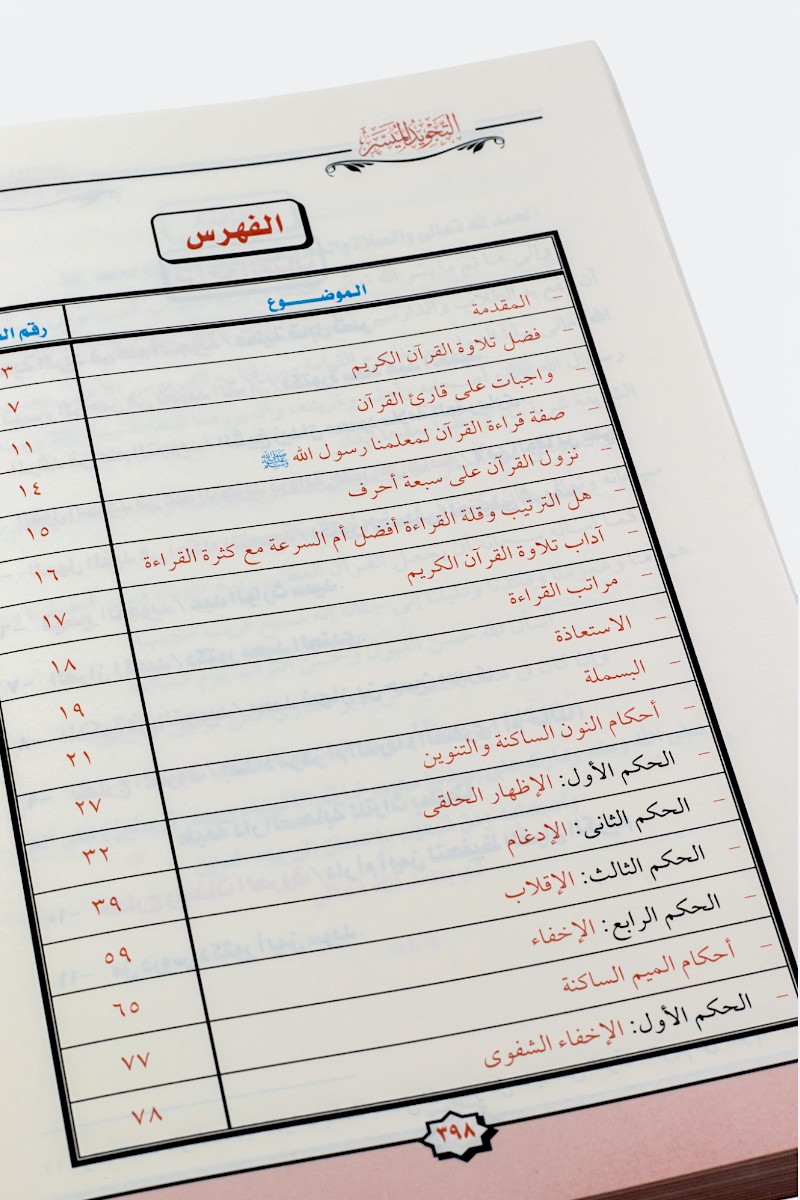 التجويد الميسر
الفهرس
الموضـــوع رقم
– المقدمة ٣
– فضل تلاوة القرآن الكريم ٧
– واجبات على قارئ القرآن ١١
– صفة قراءة القرآن لمعلمنا رسول الله ﷺ ١٤
– نزول القرآن على سبعة أحرف ١٥
– هل الترتيب وقلة القراءة أفضل أم السرعة مع كثرة القراءة ١٦
– آداب تلاوة القرآن الكريم ١٧
– مراتب القراءة ١٨
– الاستعاذة ١٩
– البسملة ٢١
– أحكام النون الساكنة والتنوين ٢٧
– الحكم الأول: الإظهار الحلقى ٣٢
– الحكم الثانى: الإدغام ٣٩
– الحكم الثالث: الإقلاب ٥٩
– الحكم الرابع: الإخفاء ٦٥
– أحكام الميم الساكنة ٧٧
– الحكم الأول: الإخفاء الشفوى ٧٨
٣٩٨